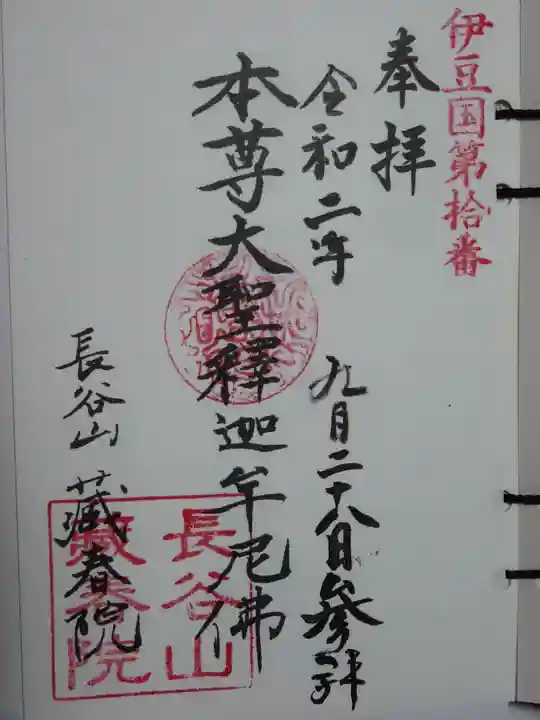 伊豆国第拾番
奉拝
令和二年 九月二十八日参拜
本尊大聖釋迦牟尼佛
長谷山 藏春院
長谷山
藏春院